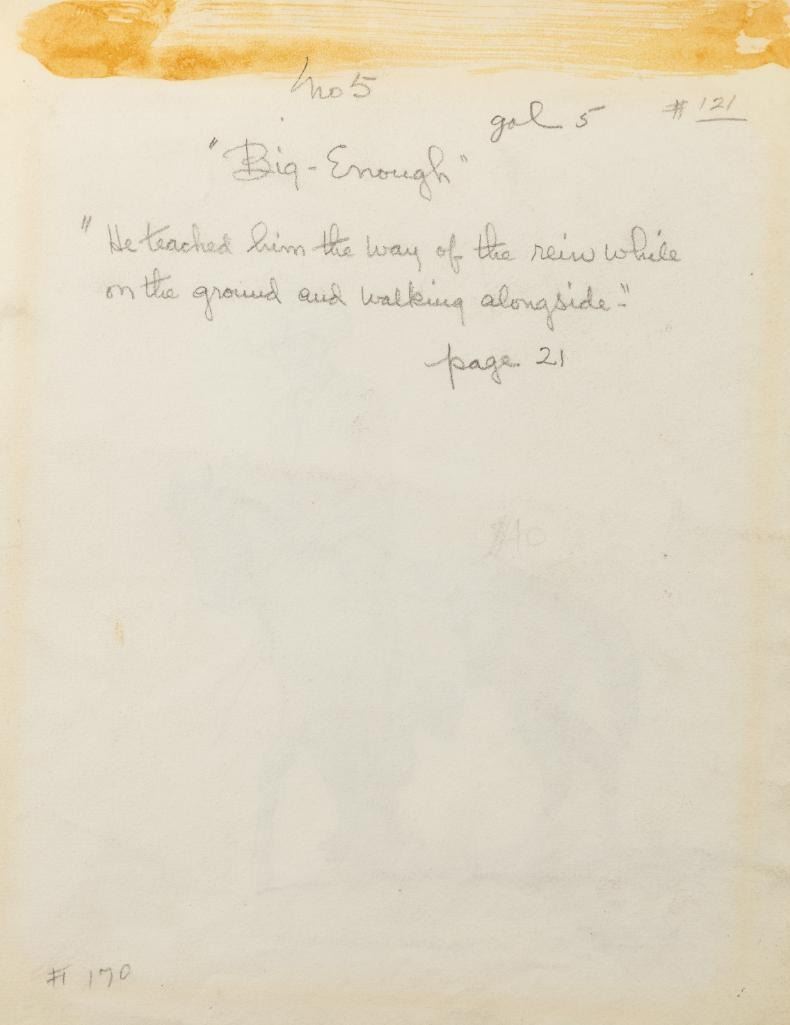 no 5
gal 5
# 121
"Big-Enough"
"He teached him the way of the rein while
on the ground and walking alongside-"
page 21
# 170